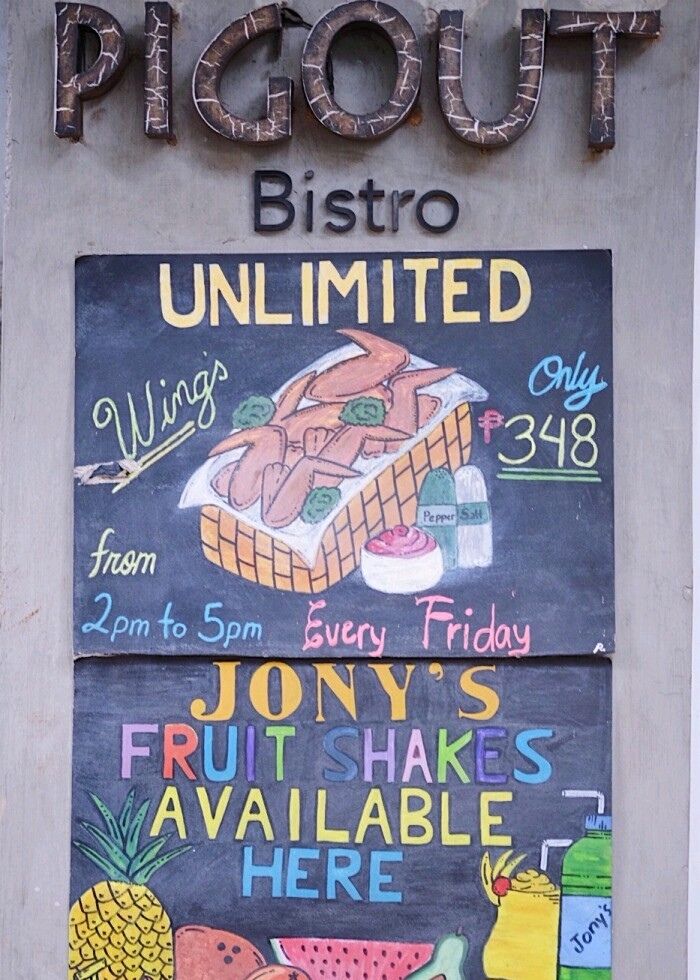 PIGOUT
Bistro
UNLIMITED
Wing's
Only
₱348
Pepper Salt
from
2pm to 5pm Every Friday
JONY'S
FRUIT SHAKES
AVAILABLE
HERE
Jony's